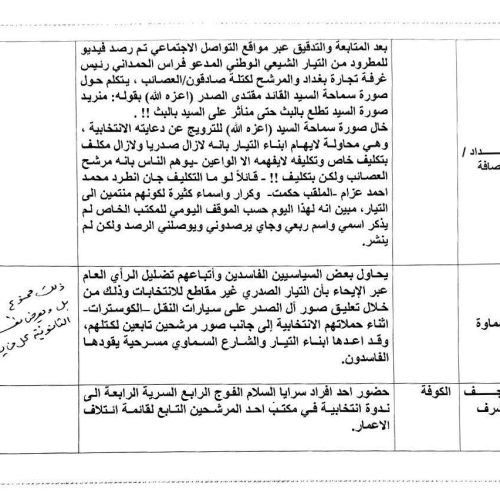 بعد المتابعة والتدقيق عبر مواقع التواصل الاجتماعي تم رصد فيديو
للمطرود من التيار الشيعي الوطني المدعو فراس الحمداني رئيس
غرفة تجارة بغداد والمرشح لكتلة صادقون/العصائب ، يتكلم حول
صورة سماحة السيد القائد مقتدى الصدر (اعزه الله) بقوله: منريد
صورة السيد تطلع بالبث حتى منأثر على السيد بالبث !! .
خال صورة سماحة السيد (اعزه الله) للترويج عن دعايته الانتخابية ،
وهي محاولة لايهام ابناء التيار بانه لازال صدريا ولازال مكلف
بتكليف خاص وتكليفه لايفهمه الا الواعين -يوهم الناس بانه مرشح
العصائب ولكن بتكليف !! - قائلاً لو ما التكليف جان انطرد محمد
احمد عزام -الملقب حكمت- وكرار واسماء كثيرة لكونهم منتمين الى
التيار، مبين انه لهذا اليوم حسب الموقف اليومي للمكتب الخاص لم
يذكر اسمي واسم ربعي وجاي يرصدوني ويوصلني الرصد ولكن لم
ينشر.
ـداد /
صافة
يحاول بعض السياسيين الفاسدين وأتباعهم تضليل الرأي العام
عبر الإيحاء بأن التيار الصدري غير مقاطع للانتخابات وذلك من
خلال تعليق صور آل الصدر على سيارات النقل -الكوسترات-
اثناء حملاتهم الانتخابية إلى جانب صور مرشحين تابعين لكتلهم،
وقد اعدها ابناء التيار والشارع السماوي مسرحية يقودها
الفاسدون.
ماوة
ذلك ممنوع
ـجف
شرف
الكوفة
حضور احد افراد سرايا السلام الفوج الرابع السرية الرابعة الى
ندوة انتخابية في مكتب احد المرشحين التابع لقائمة ائتلاف
الاعمار.